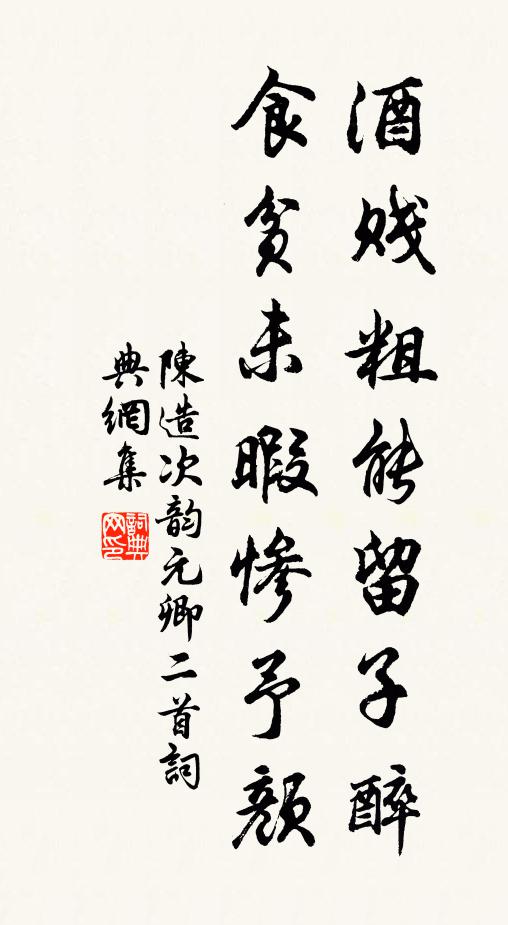 酒賤粗能留子醉
食貧未暇慘予顏
陳造次韵元卿二首詞
典網集
詞典網印